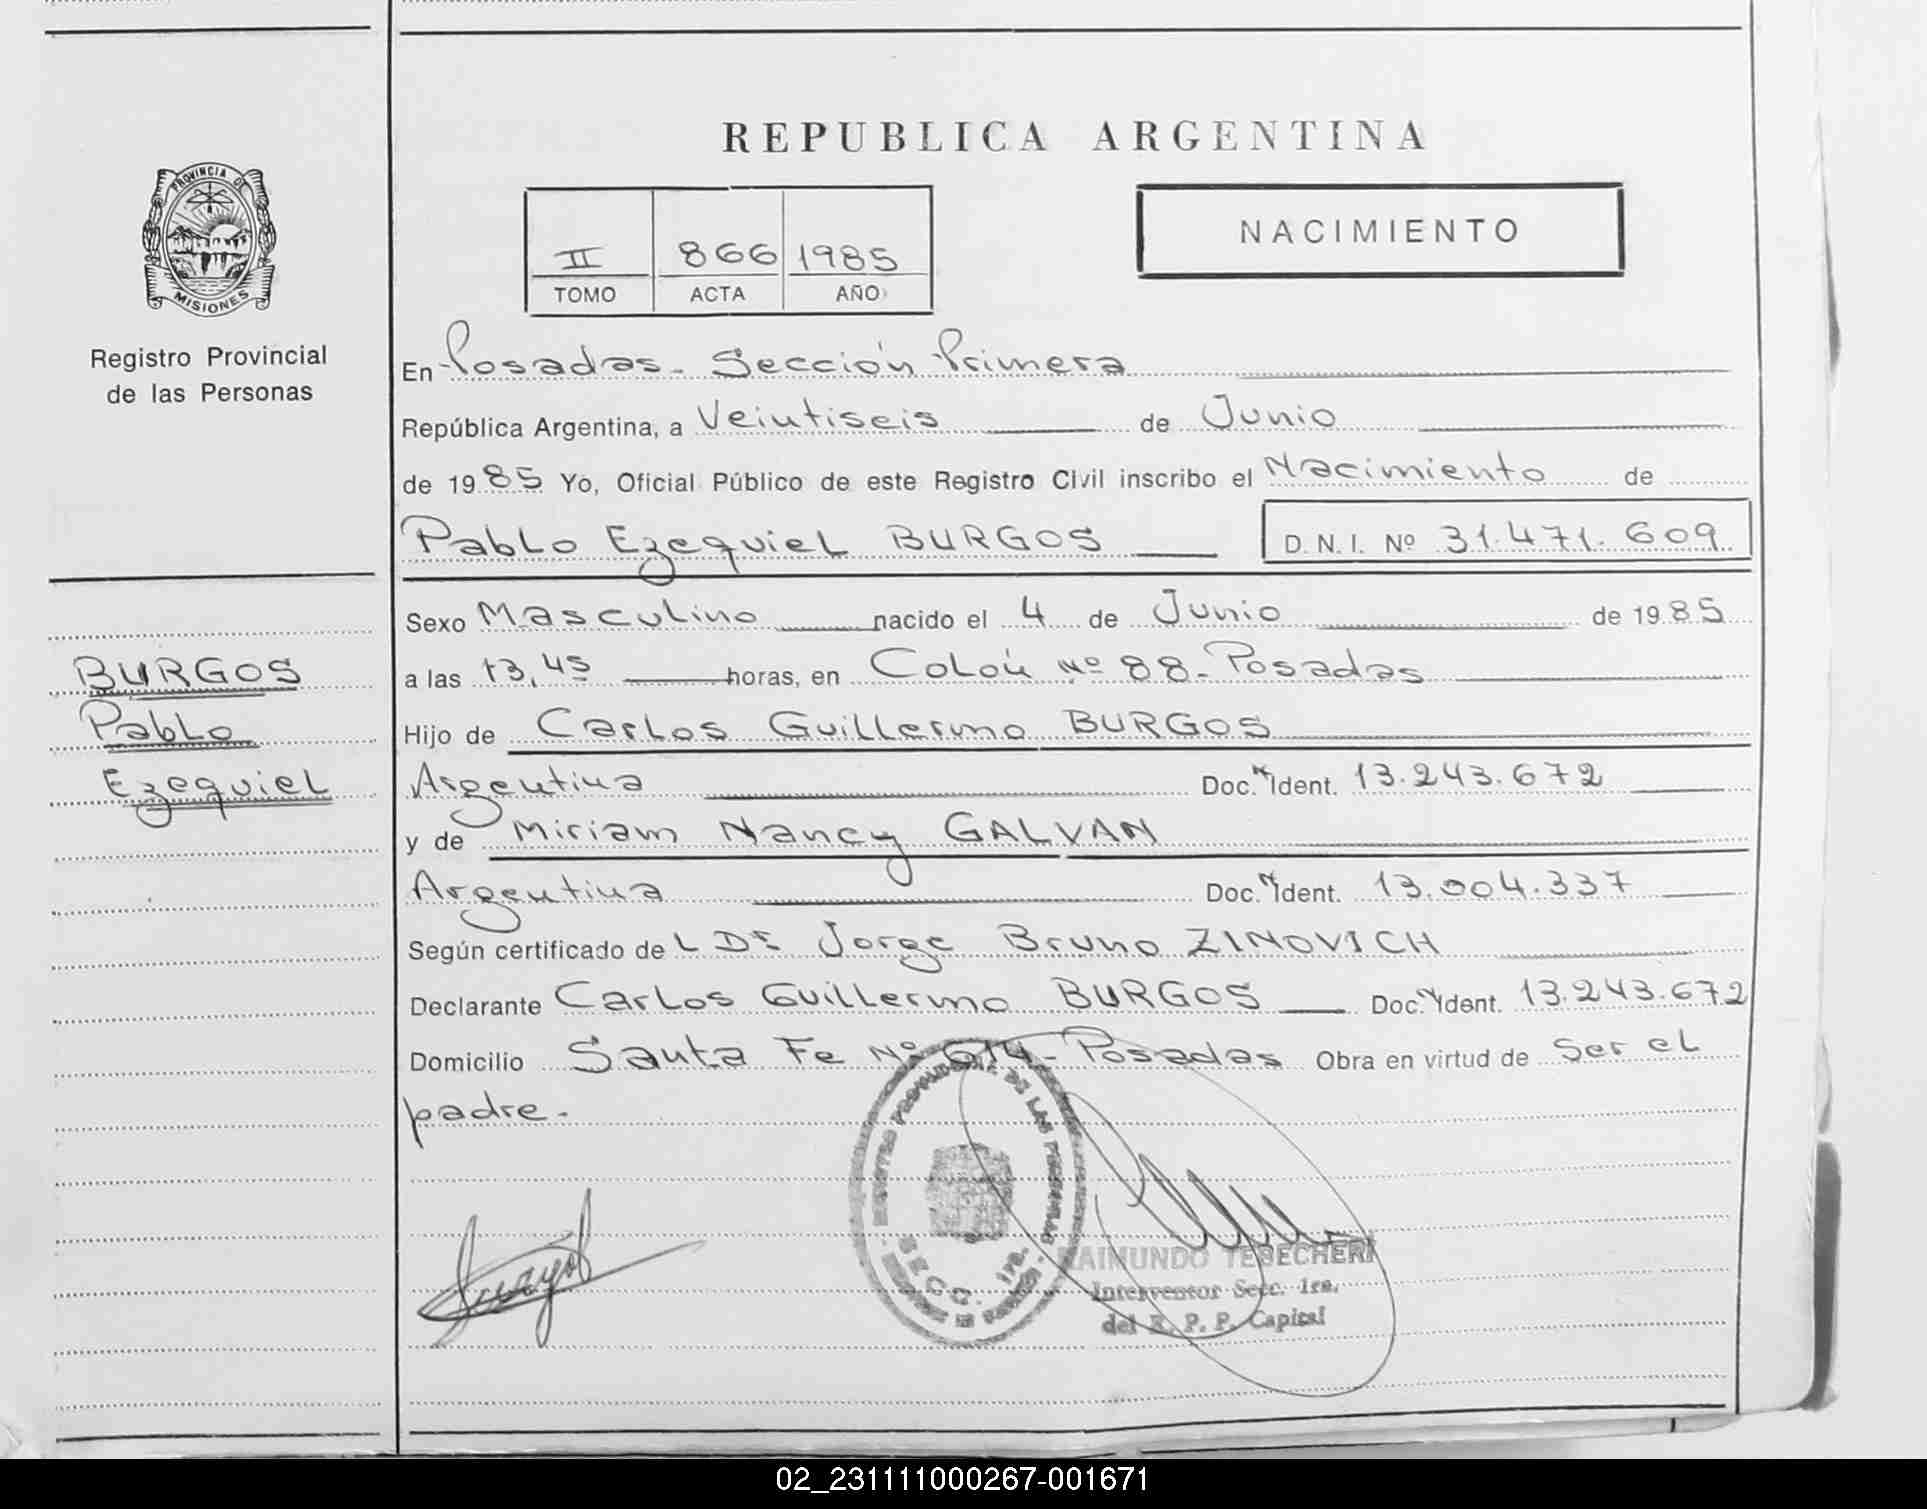 REPUBLICA ARGENTINA
PROVINCIA DE
MISIONES
Registro Provincial
de las Personas
II 866 1985
TOMO ACTA AÑO
NACIMIENTO
En Posadas - Sección Primera
República Argentina, a Veintiseis de Junio
de 1985 Yo, Oficial Público de este Registro Civil inscribo el Nacimiento de
Pablo Ezequiel BURGOS D.N.I. Nº 31.471.609
BURGOS
Pablo
Ezequiel
Sexo Masculino nacido el 4 de Junio de 1985
a las 13,45 horas, en Colón Nº 88 - Posadas
Hijo de Carlos Guillermo BURGOS
Argentina Doc. N Ident. 13.243.672
y de Miriam Nancy GALVAN
Argentina Doc. N Ident. 13.004.337
Según certificado del Dr Jorge Bruno ZINOVICH
Declarante Carlos Guillermo BURGOS Doc. N Ident. 13.243.672
Domicilio Santa Fe Nº 614 - Posadas Obra en virtud de Ser el
padre.
DE LAS PERSONAS
SECC. 1ra.
RAIMUNDO TEBECHERI
Interventor Secc. 1ra.
del R. P. P. Capital
02_231111000267-001671